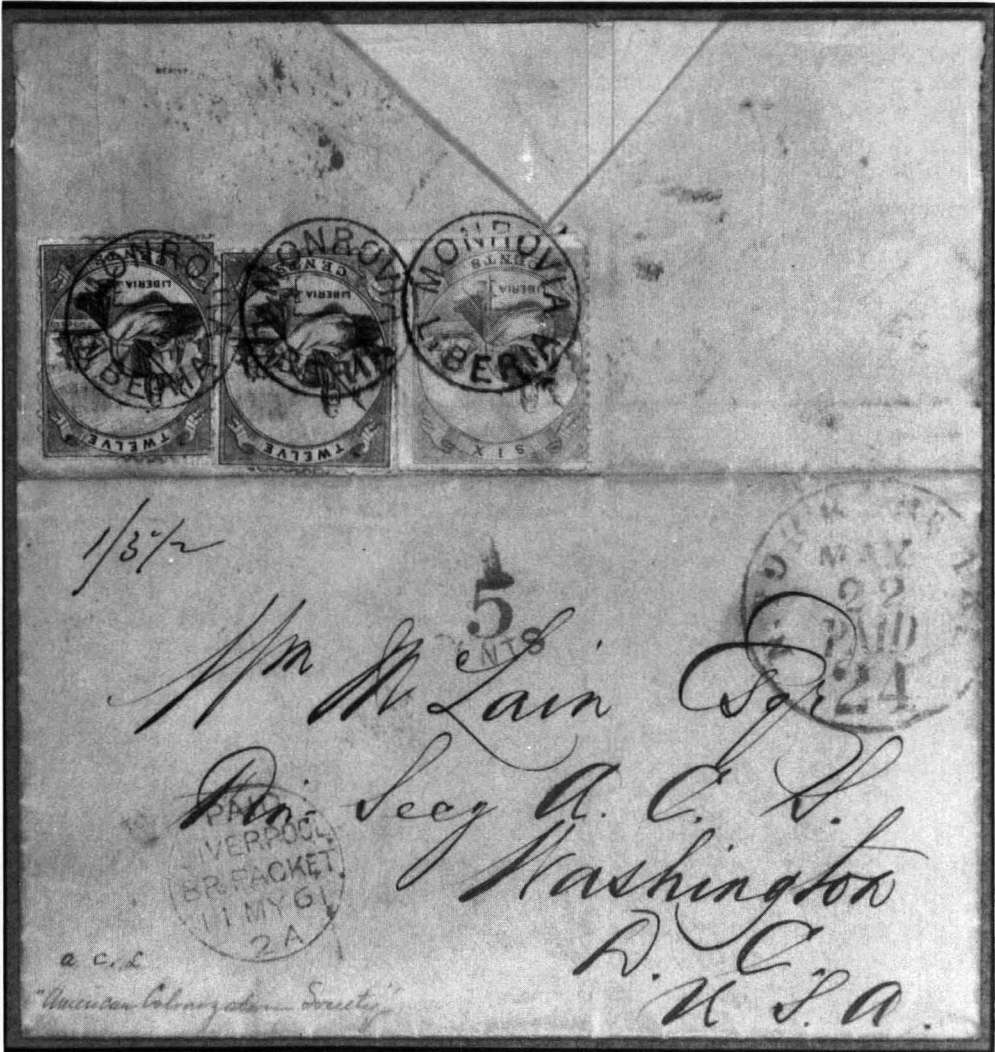 MONROVIA LIBERIA
MONROVIA LIBERIA
MONROVIA LIBERIA
CENTS
LIBERIA
TWELVE
CENTS
LIBERIA
TWELVE
CENTS
LIBERIA
SIX
1/3½
5
CENTS
MAY
22
PAID
24
Wm McLain Esqr
Fin. Secy A. C. S.
Washington
D. C.
U. S. A.
PAID
LIVERPOOL
BR. PACKET
11 MY 61
2 A
a c. s
"American Colonization Society"